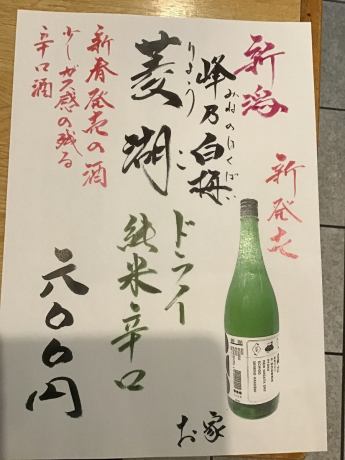 新潟
新発売
峰乃白梅
みねのはくばい
菱湖
りょうこ
ドライ
純米辛口
新春発売の酒
少しガス感の残る
辛口酒
六〇〇円
お家